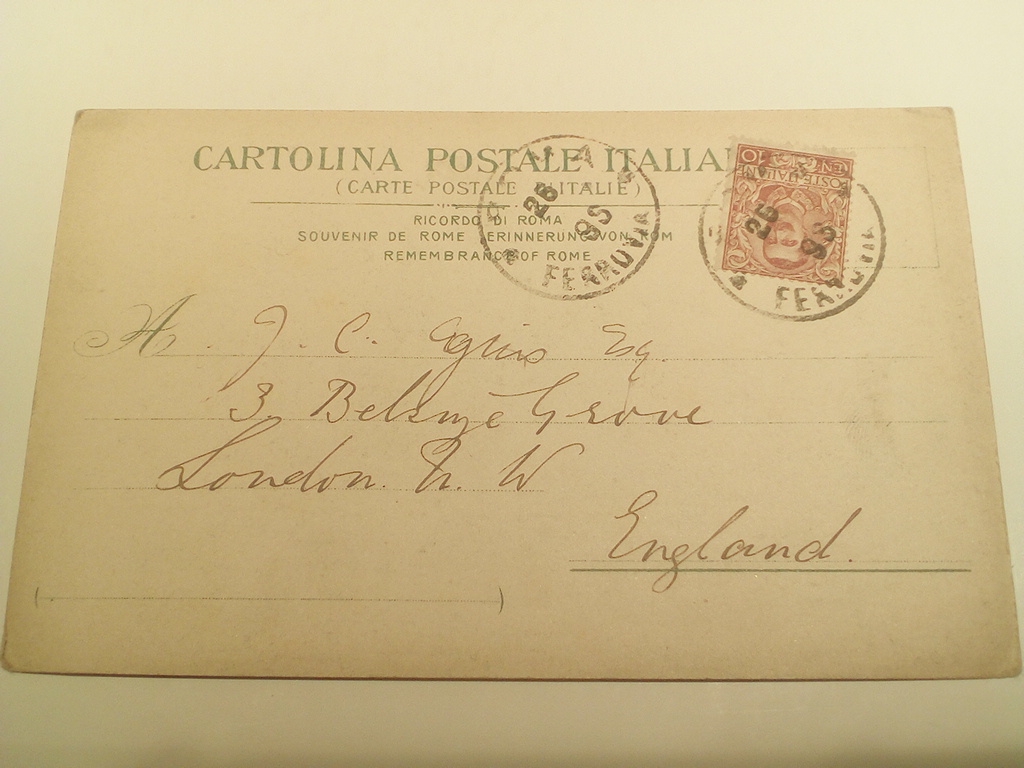 CARTOLINA POSTALE ITALIANA
(CARTE POSTALE D'ITALIE)
RICORDO DI ROMA
SOUVENIR DE ROME ERINNERUNG VON ROM
REMEMBRANCE OF ROME
ROMA
26 95
FERROVIA
POSTE ITALIANE
CENT. 10
26 95
FERROVIA
A. J. C. Agius Esq.
3, Belsize Grove
London. N. W
England.